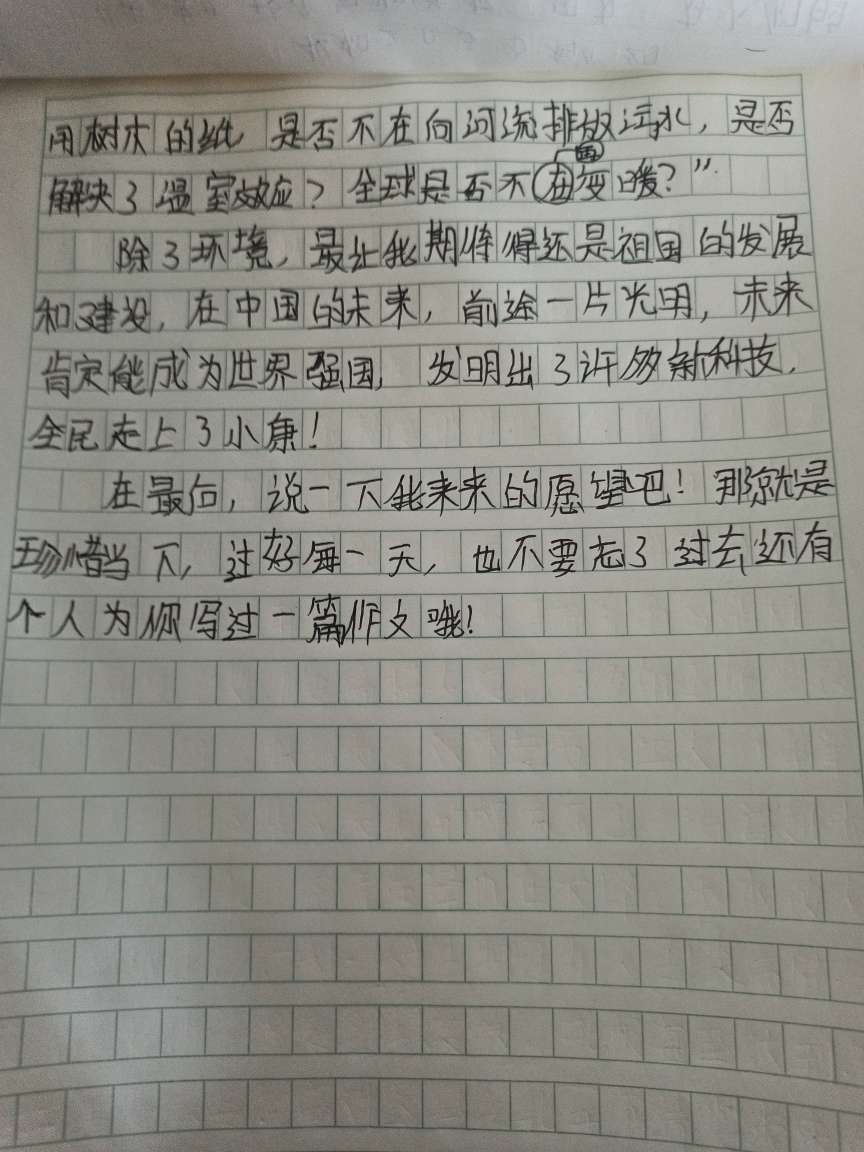 用树木的纸 是否不在向河流排放污水，是否
解决了温室效应？全球是否不再变暖？”
除了环境，最让我期待得还是祖国的发展
和建设，在中国的未来，前途一片光明，未来
肯定能成为世界强国，发明出了许多新科技，
全民走上了小康！
在最后，说一下我未来的愿望吧！那就是
珍惜当下，过好每一天，也不要忘了过去还有
个人为你写过一篇作文哦！